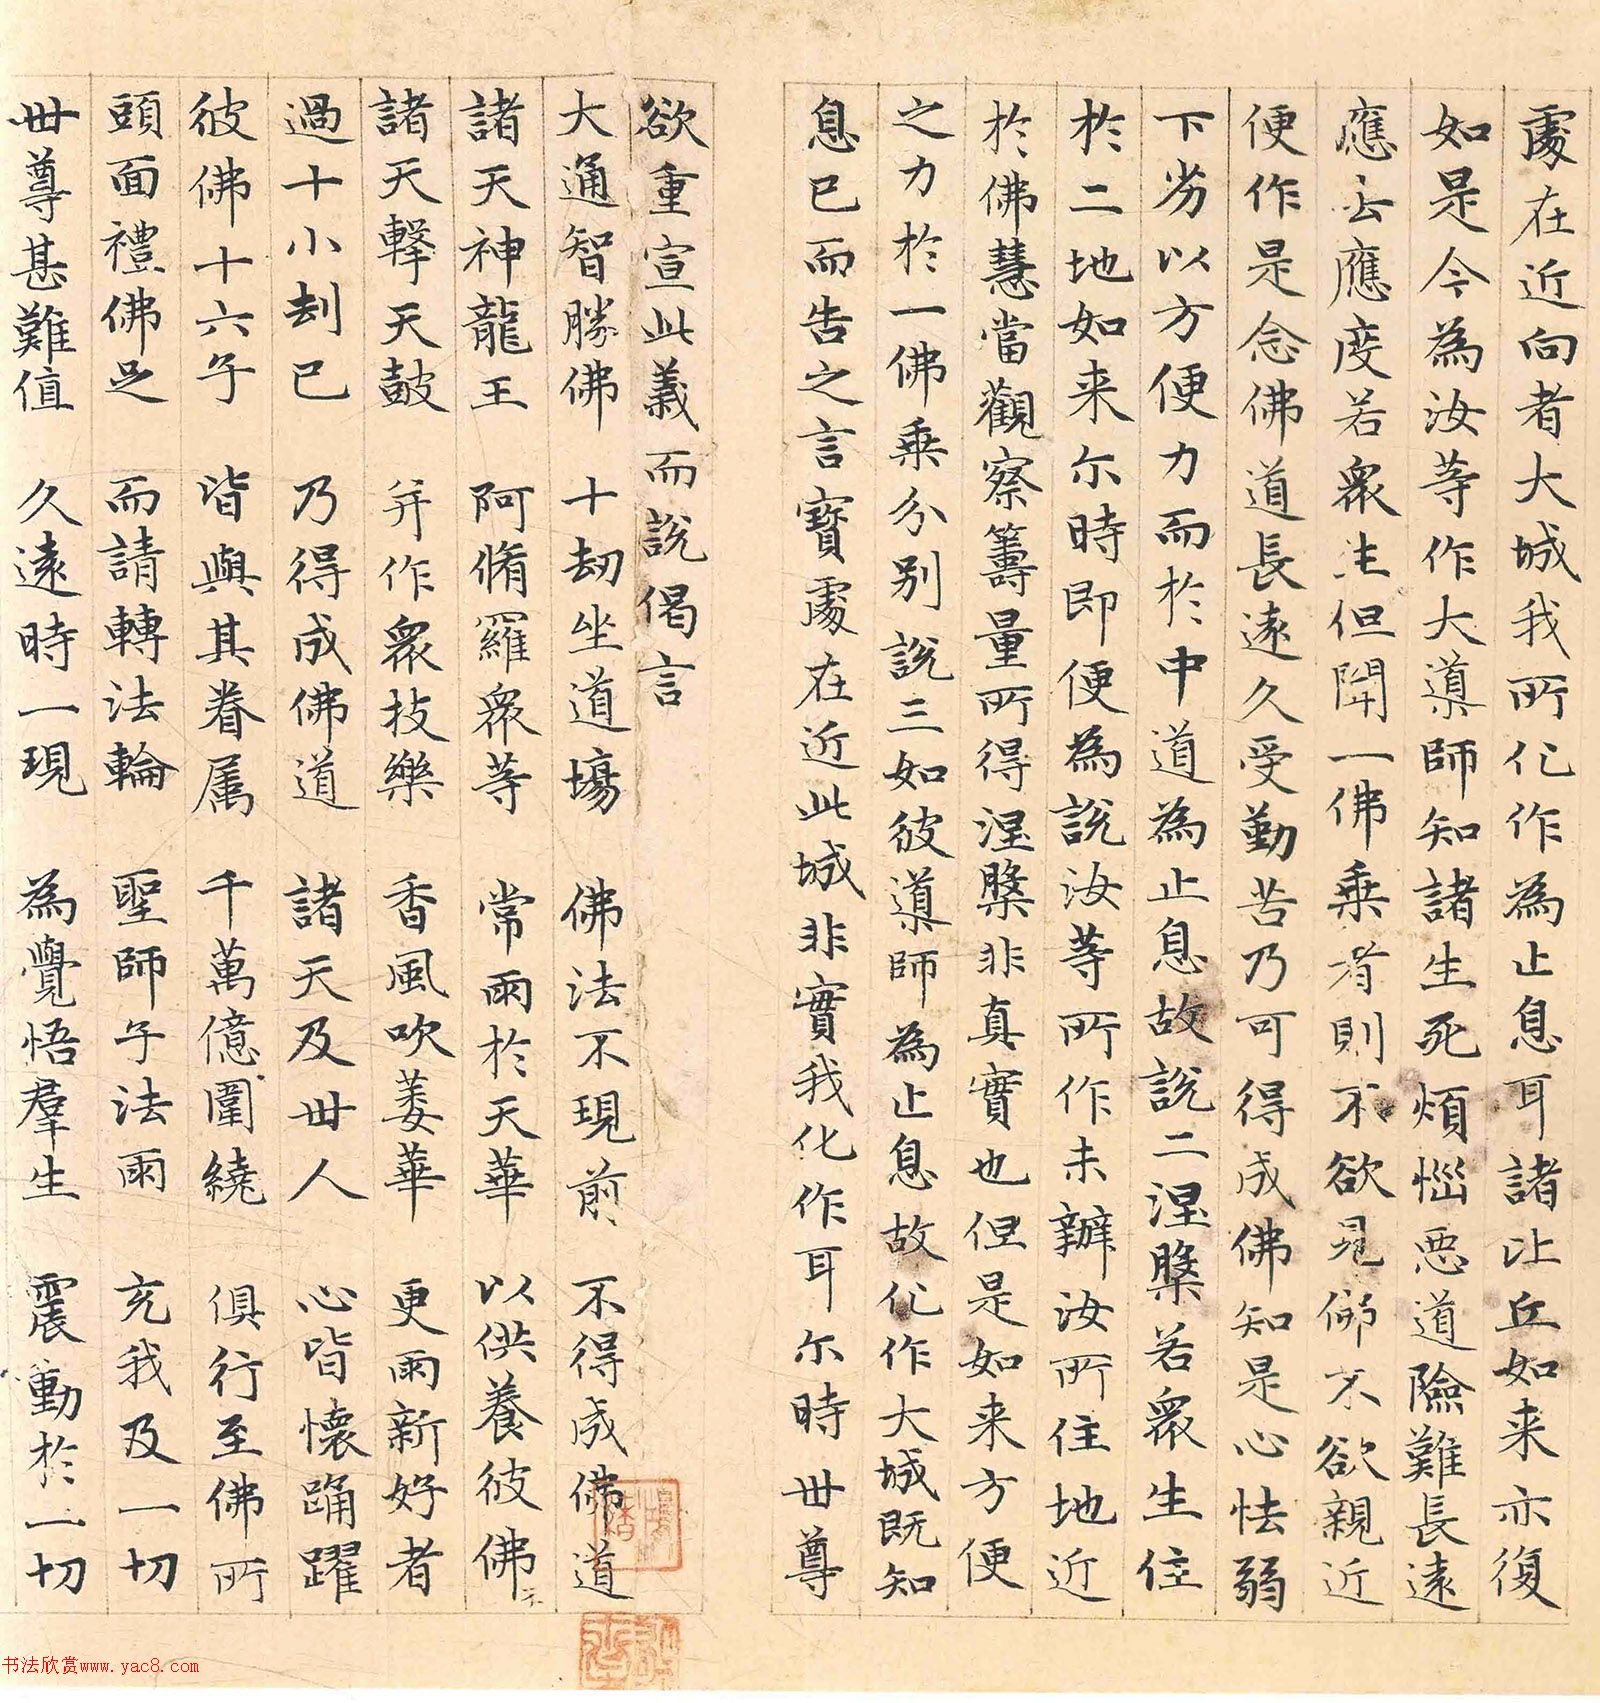 處在近向者大城我所化作為止息耳諸比丘如来亦復
如是今為汝等作大導師知諸生死煩惱惡道險難長遠
應去應度若眾生但聞一佛乘者則不欲見佛不欲親近
便作是念佛道長遠久受勤苦乃可得成佛知是心怯弱
下劣以方便力而於中道為止息故說二涅槃若眾生住
於二地如来尒時即便為說汝等所作未辦汝所住地近
於佛慧當觀察籌量所得涅槃非真實也但是如来方便
之力於一佛乘分別說三如彼導師為止息故化作大城既知
息已而告之言寶處在近此城非實我化作耳尒時世尊
欲重宣此義而說偈言
大通智勝佛 十劫坐道場 佛法不現前 不得成佛道
諸天神龍王 阿脩羅眾等 常雨於天華 以供養彼佛
諸天擊天鼓 并作眾技樂 香風吹萎華 更雨新好者
過十小劫已 乃得成佛道 諸天及世人 心皆懷踊躍
彼佛十六子 皆與其眷属 千萬億圍繞 俱行至佛所
頭面禮佛足 而請轉法輪 聖師子法雨 充我及一切
世尊甚難值 久遠時一現 為覺悟羣生 震動於一切
书法欣赏www.yac8.com